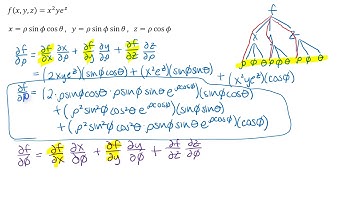 f(x, y, z) = x²ye^z
x = ρ sin ϕ cos θ , y = ρ sin ϕ sin θ , z = ρ cos ϕ
f
x y z
ρ ϕ θ ρ ϕ θ ρ ϕ θ
∂f/∂ρ = ∂f/∂x ∂x/∂ρ + ∂f/∂y ∂y/∂ρ + ∂f/∂z ∂z/∂ρ
= (2xye^z)(sinϕcosθ) + (x²e^z)(sinϕsinθ) + (x²ye^z)(cosϕ)
∂f/∂ρ = (2·ρsinϕcosθ·ρsinϕsinθe^ρcosϕ)(sinϕcosθ)
+ (ρ²sin²ϕcos²θ e^ρcosϕ)(sinϕsinθ)
+ (ρ²sin²ϕcos²θ ρsinϕsinθe^ρcosϕ)(cosϕ)
∂f/∂ϕ = ∂f/∂x ∂x/∂ϕ + ∂f/∂y ∂y/∂ϕ + ∂f/∂z ∂z/∂ϕ